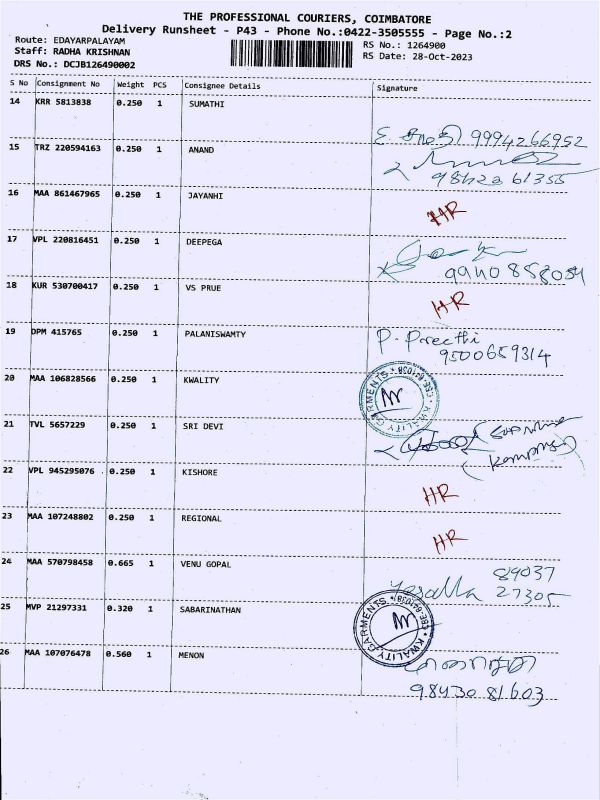 THE PROFESSIONAL COURIERS, COIMBATORE
Delivery Runsheet - P43 - Phone No.:0422-3505555 - Page No.:2
Route: EDAYARPALAYAM
Staff: RADHA KRISHNAN
DRS No.: DCJB126490002
RS No.: 1264900
RS Date: 28-Oct-2023
S No Consignment No Weight PCS Consignee Details Signature
14 KRR 5813838 0.250 1 SUMATHI
9994266952
15 TRZ 220594163 0.250 1 ANAND
61355
16 MAA 861467965 0.250 1 JAYANHI
HR
17 VPL 220816451 0.250 1 DEEPEGA
9940858054
18 KUR 530700417 0.250 1 VS PRUE
HR
19 DPM 415765 0.250 1 PALANISWAMTY
P. Preethi
9500659314
20 MAA 106828566 0.250 1 KWALITY
KWALITY GARMENTS * CBE-641038 *
21 TVL 5657229 0.250 1 SRI DEVI
22 VPL 945295076 0.250 1 KISHORE
HR
23 MAA 107248802 0.250 1 REGIONAL
HR
24 MAA 570798458 0.665 1 VENU GOPAL
89037
27305
25 MVP 21297331 0.320 1 SABARINATHAN
KWALITY GARMENTS * CBE-641038 *
26 MAA 107076478 0.560 1 MENON
9843081603